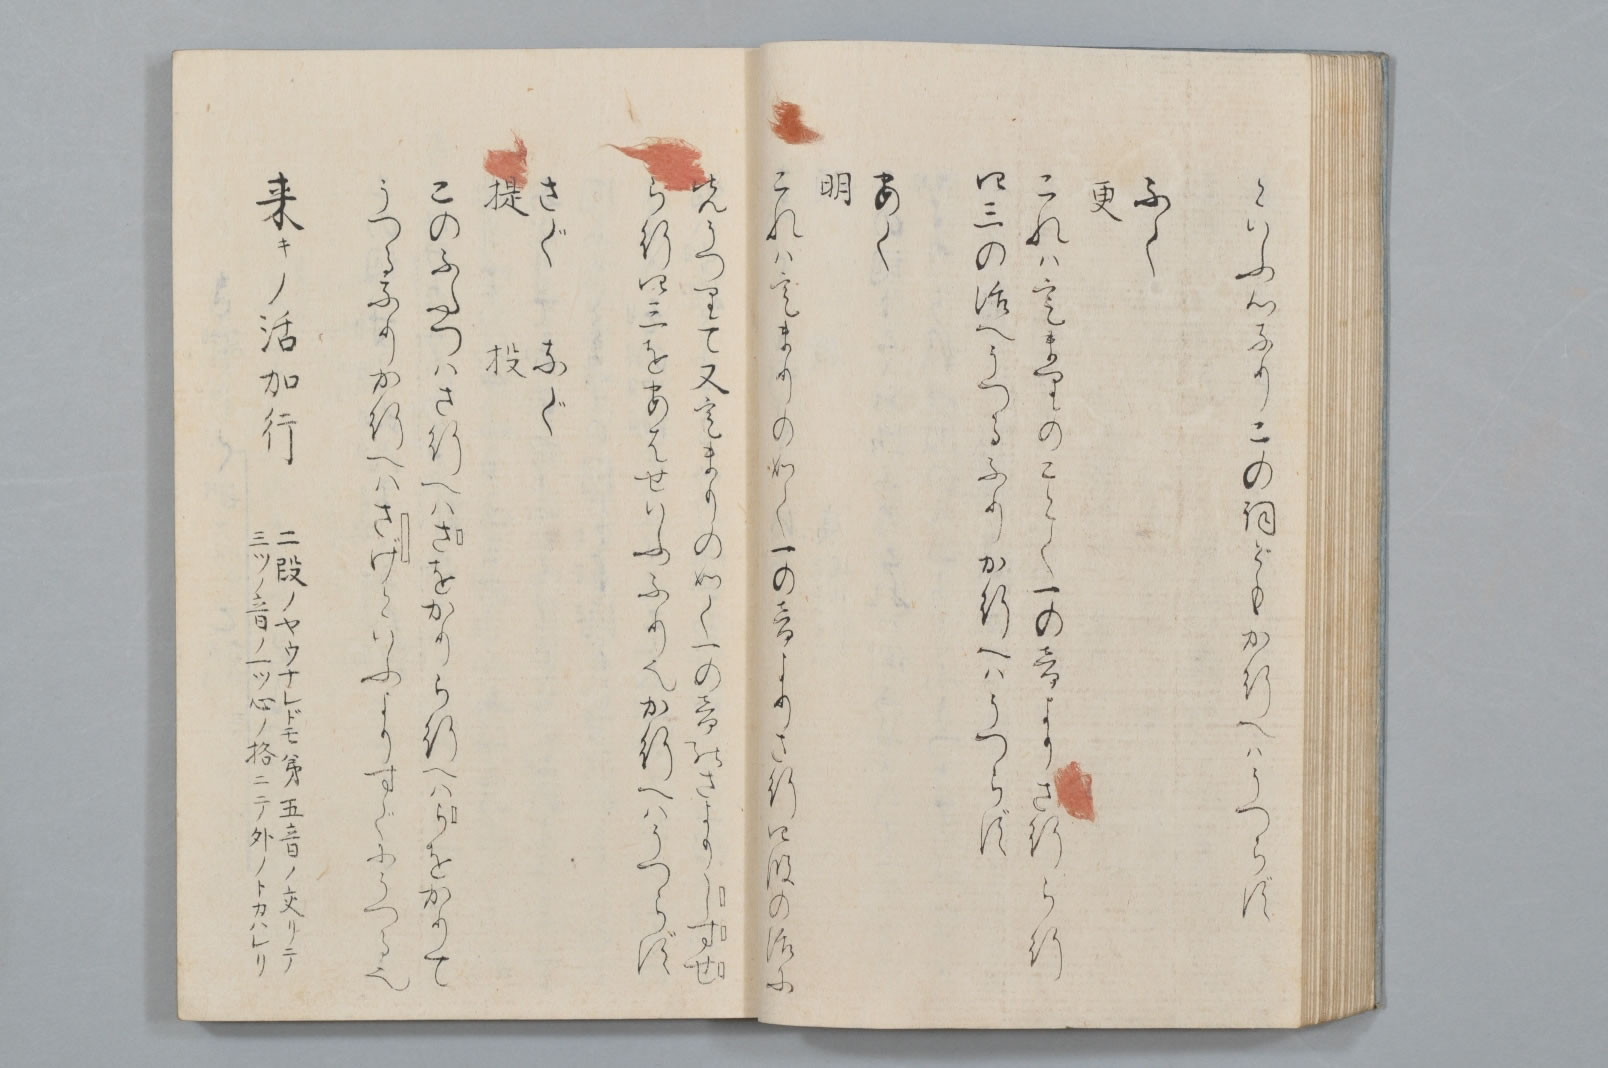 といふ心なりこの詞どもか行へハうつらず
ふく
更
これハ定まりのことく一の音よりさ行ら行
四三の活へうつるなりか行へハうつらず
あく
明
これハ定まりの如く一の音よりさ行四段の活に
うつりて又定まりの如く一の音のさよりしすせ
ら行四三をあはせいふなりか行へハうつらず
さぐ　なぐ
提　投
このふたつハさ行へハさをかりら行へハらをかりて
うつるなりか行へハさげといふよりすぐにうつる也
来キノ活加行
二段ノヤウナレドモ第五音ノ交リテ
三ツノ音ノ一ツ心ノ格ニテ外ノトカハレリ